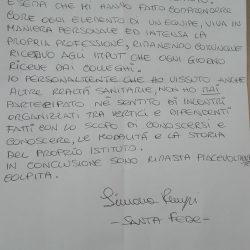 E SEMA CHE MI HANNO FATTO COMPRENDERE
COME OGNI ELEMENTO DI UN'EQUIPE, VIVA IN
MANIERA PERSONALE ED INTENSA LA
PROPRIA PROFESSIONE, RIMANENDO COMUNQUE
RICETTIVO AGLI INPUT CHE OGNI GIORNO
RICEVE DAI COLLEGHI.
IO PERSONALMENTE CHE HO VISSUTO ANCHE
ALTRE REALTÀ SANITARIE, NON HO MAI
PARTECIPATO NE SENTITO DI INCONTRI
ORGANIZZATI TRA VERTICI E DIPENDENTI
FATTI CON LO SCOPO DI CONOSCERSI E
CONOSCERE, LE MODALITÀ E LA STORIA
DEL PROPRIO ISTITUTO.
IN CONCLUSIONE SONO RIMASTA PIACEVOLMENTE
COLPITA.
Simona
- SANTA FEDE -